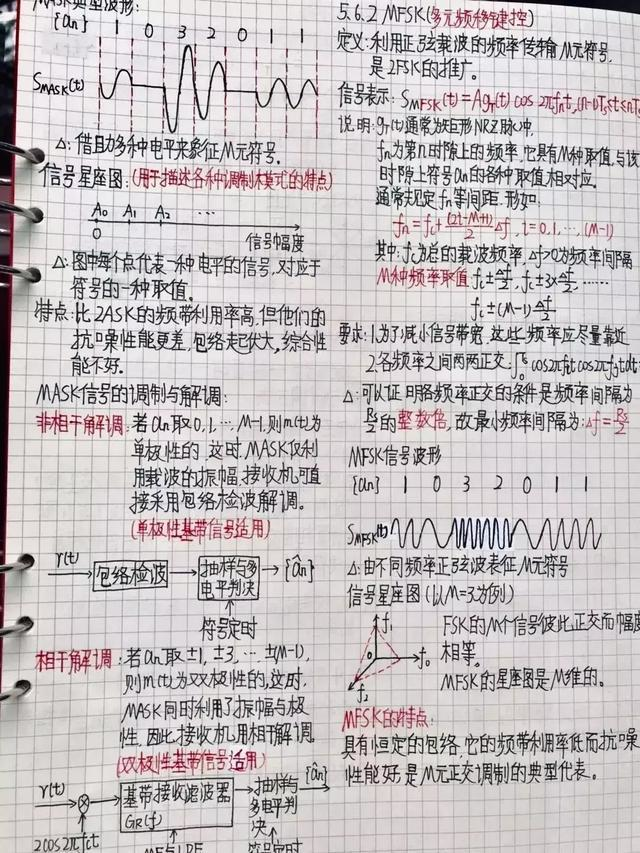 MASK典型波形:
{an} 1 0 3 2 0 1 1
SMASK(t)
△: 借助多种电平来象征M元符号.
信号星座图: (用于描述各种调制模式的特点)
A₀ A₁ A₂ ...
0 信号幅度
△: 图中每个点代表一种电平的信号,对应于
符号的一种取值.
特点: 比2ASK的频带利用率高,但他们的
抗噪性能更差,包络起伏大,综合性
能不好.
MASK信号的调制与解调:
非相干解调: 若an取0,1,…,M-1,则m(t)为
单极性的,这时,MASK仅利
用载波的振幅,接收机可直
接采用包络检波解调.
(单极性基带信号适用)
r(t) 包络检波 抽样与多
电平判决 {ân}
符号定时
相干解调: 若an取±1,±3,…±(M-1),
则m(t)为双极性的,这时,
MASK同时利用了振幅与极
性,因此,接收机用相干解调.
(双极性基带信号适用)
r(t) ⊗ 基带接收滤波器
GR(f) 抽样与
多电平判
决 {ân}
2cos2πfct 符号定时
5.6.2 MFSK(多元频移键控)
定义: 利用正弦载波的频率传输M元符号,
是2FSK的推广.
信号表示: SMFSK(t)=AgT(t)cos2πfnt,(n-1)Ts≤t≤nTs
说明: gT(t)通常为矩形NRZ脉冲,
fn为第n时隙上的频率,它具有M种取值,与该
时隙上符号an的各种取值相对应.
通常规定fn等间距,形如.
fn=fc+(2i-M+1)/2 Δf, i=0,1,…,(M-1)
其中:fc为总的载波频率,Δf>0为频率间隔
M种频率取值: fc±Δf/2, fc±3×Δf/2, ……
fc±(M-1)Δf/2
要求: 1.为了减小信号带宽,这些频率应尽量靠近
2.各频率之间两两正交:∫₀ cos2πfit cos2πfjtdt
△: 可以证明各频率正交的条件是频率间隔为
Rs/2的整数倍,故最小频率间隔为:Δf=Rs/2
MFSK信号波形
{an} 1 0 3 2 0 1 1
SMFSK(t)
△: 由不同频率正弦波表征M元符号
信号星座图(以M=3为例)
f₁ f₀ f₂ 0
FSK的M个信号彼此正交而幅度
相等.
MFSK的星座图是M维的.
MFSK的特点:
具有恒定的包络,它的频带利用率低而抗噪
性能好,是M元正交调制的典型代表.